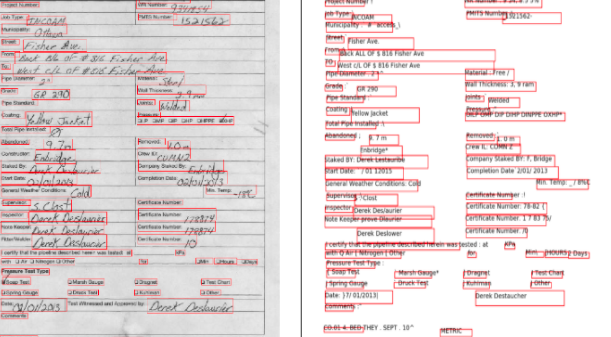 Project Number
Job Type: INCOAM
PMTS Number: 1521562
Municipality: Ottawa
Street: Fisher Ave.
From: Back B/o of # 816 Fisher Ave
To: West c/L of # 816 Fisher Ave
Pipe Diameter: 2"
Material: Steel
Grade: GR 290
Wall Thickness:
Pipe Standard:
Joints: Welded
Coating: Yellow Jacket
Pressure
Total Pipe Installed:
Abandoned: 9.7m
Removed: 1.0m
Constructor: Enbridge
Crew ID: CUMN2
Staked By: Derek Deslaurier
Company Staked By: Enbridge
Start Date: 02/01/2013
Completion Date: 02/01/2013
General Weather Conditions: Cold
Min. Temp: -18C
Supervisor: S. Clost
Certificate Number:
Inspector: Derek Deslaurier
Certificate Number: 178874
Note Keeper: Derek Deslaurier
Certificate Number: 178874
Derek Deslaurier
Certificate Number: 10
I certify that the pipeline described herein was tested: at kPa
with O Air O Nitrogen O Other for Hours Days
Pressure Test Type
Soap Test Marsh Gauge Dragnet Test Chart
Spring Gauge Druck Test Kuhlman Other
Date: 02/01/2013 Test Witnessed and Approved by: Derek Deslaurier
Comments:
Project Number !
Job Type: INCOAM
PMTS Number 1521162-
Municipality : # access,\
Street: Fisher Ave.
From: Back ALL OF $ 816 Fisher Ave
To: West C/L OF $ 816 Fisher Ave
Pipe Diameter : 2 ^
Material : Free /
Grade GR 290
Wall Thickness: 3, 9 ram
Pipe Standard
Joints : Welded
Coating Yellow Jacket
DILP OMP DIP DIHP DINFPE OXHP*
Total Pipe Installed :\
Abandoned ; 9. 7 m
Removed: 1. 0 m
Enbridge*
Crew IL: CUMN 2
Staked BY: Derek Lestaurbi
Company Staked By: F, Bridge
Start Date: / 01 12015
Completion Date 2/01/ 2013
General Weather Conditions: Cold
Min. Temp: _/ 8%C
Supervisor: "Clost
Certificate Number :!
Inspector: Derek Des/aurier
Certificate Number: 78-82 (
Note Keeper prove Dlaurier
Certificate Number: 1 7 83 70/
Derek Deslower
Certificate Number: /0
I certify that the pipeline described herein was tested : at KPa
with O Air | Nitrogen | Other for Min\ HOURS 2 Days
Pressure Test Type :
| Soap Test | Marsh Gauge* | Dragnet | Test Chart
| Spring Gauge | Druck Test | Kuhlman | Other
Date: )7/ 01/2013| Derek Destaucher
Comments :'
CO.01 4. BED THEY . SEPT . 10^
METRIC